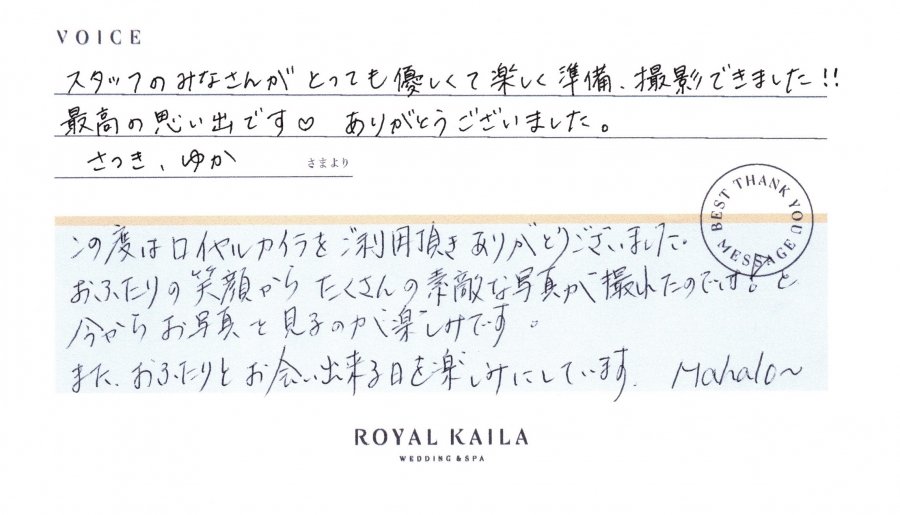 VOICE
スタッフのみなさんがとっても優しくて楽しく準備、撮影できました!!
最高の思い出です♡ ありがとうございました。
さつき、ゆか さまより
BEST THANK YOU MESSAGE
この度はロイヤルカイラをご利用頂きありがとうございました。
おふたりの笑顔からたくさんの素敵な写真が撮れたのでは!と
今からお写真を見るのが楽しみです。
また、おふたりとお会い出来る日を楽しみにしています。 Mahalo~
ROYAL KAILA
WEDDING & SPA